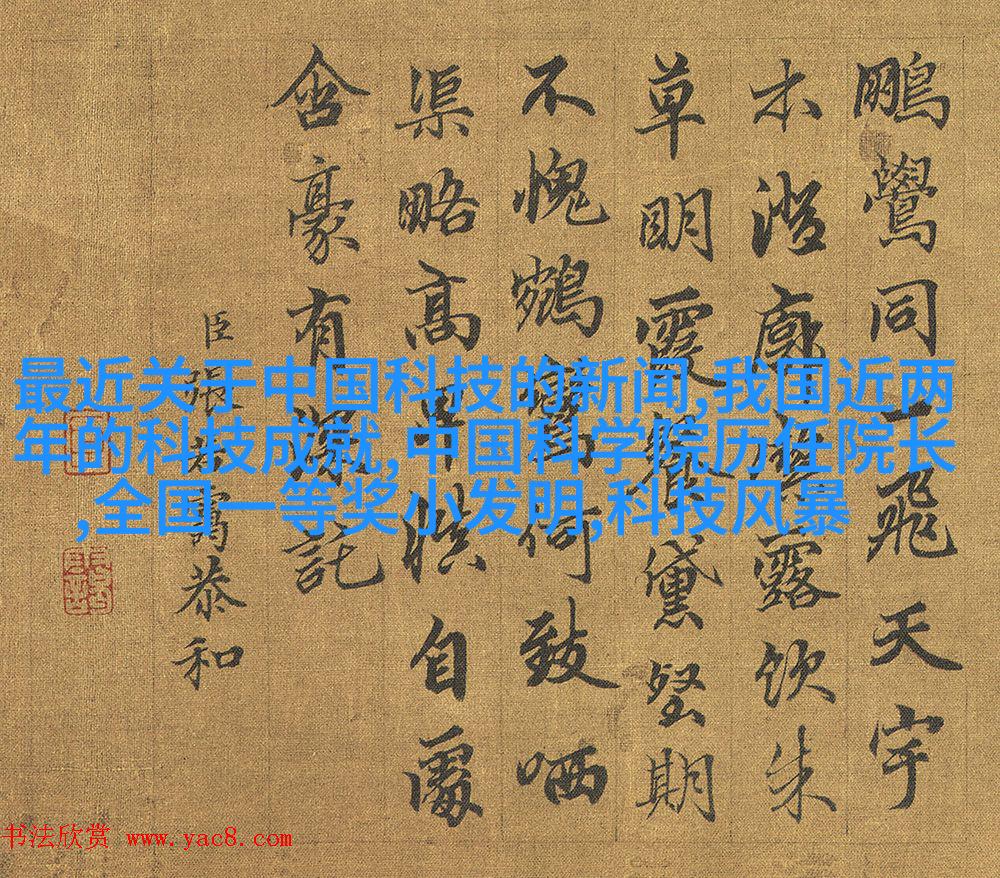 鵬鷽同一飛天宇
木澄廓露飲朱
草明霞餐黛壑期
不愧鶴何致哂
渠略高自
含豪有託
臣張若靄恭和
最近关于中国科技的新闻,我国近两
年的科技成就,中国科学院历任院长
,全国一等奖小发明,科技风暴
书法欣赏 www.yac8.com